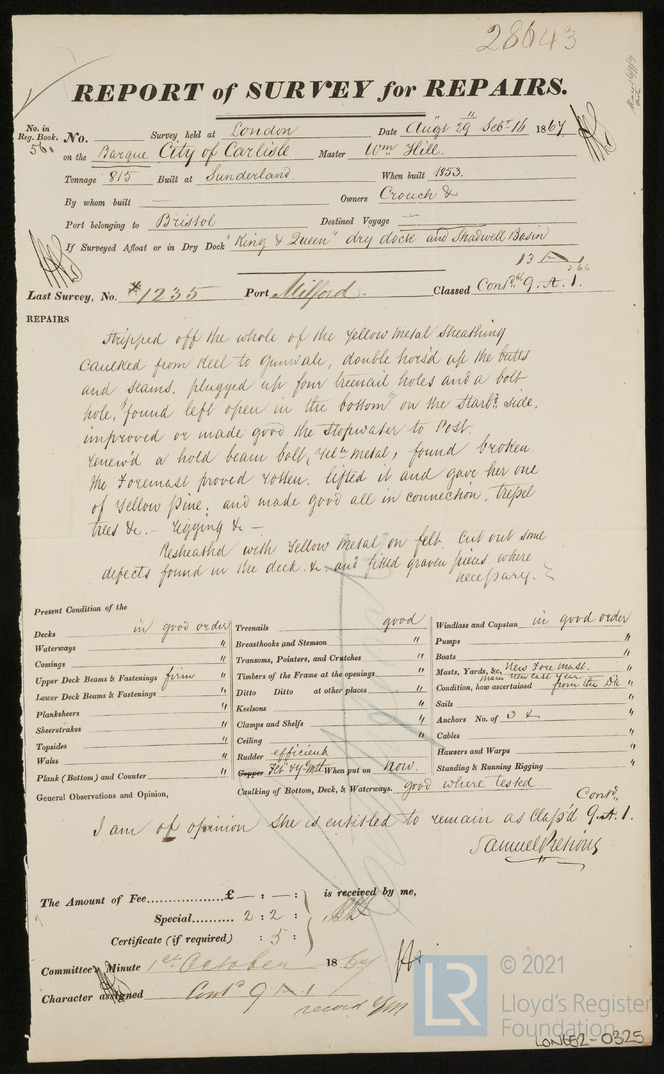 28643
REPORT of SURVEY for REPAIRS.
No. in Reg. Book. No. Survey held at London Date Augt 29th Sebr 16 1867
56,
on the Barque City of Carlisle Master Wm Hill.
Tonnage 815 Built at Sunderland When built 1853.
By whom built — Owners Crouch &
Port belonging to Bristol Destined Voyage —
If Surveyed Afloat or in Dry Dock "King & Queen" dry dock and Shadwell Basin
13
Last Survey, No. *1235 Port Milford. Classed Contd 9. A. 1.
REPAIRS
Stripped off the whole of the Yellow Metal Sheathing
Caulked from Keel to Gunwale, double hors'd up the butts
and seams. plugged up four treenail holes and a bolt
hole, "found left open in the bottom" on the Starbd side,
improved or made good the Stopwater to Post.
Renew'd a hold beam bolt, Yelw metal, found broken.
the Foremast proved rotten. lifted it and gave her one
of Yellow Pine; and made good all in connection, tresel
trees &c. — rigging & —
Resheath'd with Yellow Metal on felt. Cut out some
defects found in the deck. & and fitted graven pieces where
necessary.
Present Condition of the
Decks in good order Treenails good Windlass and Capstan in good order
Waterways " Breasthooks and Stemson " Pumps "
Comings " Transoms, Pointers, and Crutches " Boats "
Upper Deck Beams & Fastenings firm Timbers of the Frame at the openings " Masts, Yards, &c. New Fore Mast.
Main new last year
Lower Deck Beams & Fastenings " Ditto Ditto at other places " Condition, how ascertained from the Dk
Planksheers " Keelsons " Sails "
Sheerstrakes " Clamps and Shelfs " Anchors No. of 3 &
Topsides " Ceiling " Cables "
Wales " Rudder efficient Hawsers and Warps "
Plank (Bottom) and Counter " Copper Felt & Y. Mtl When put on now. Standing & Running Rigging "
General Observations and Opinion, Caulking of Bottom, Deck, & Waterways. good where tested.
Contd
I am of opinion She is entitled to remain as Class'd 9. A. 1.
The Amount of Fee £ — : — : is received by me,
Special 2 : 2 :
Certificate (if required) : 5 :
Committee's Minute 1st October 1867
Character assigned Contd 9 A 1
record YM
LR © 2021
Lloyd's Register
Foundation
LON652-0325